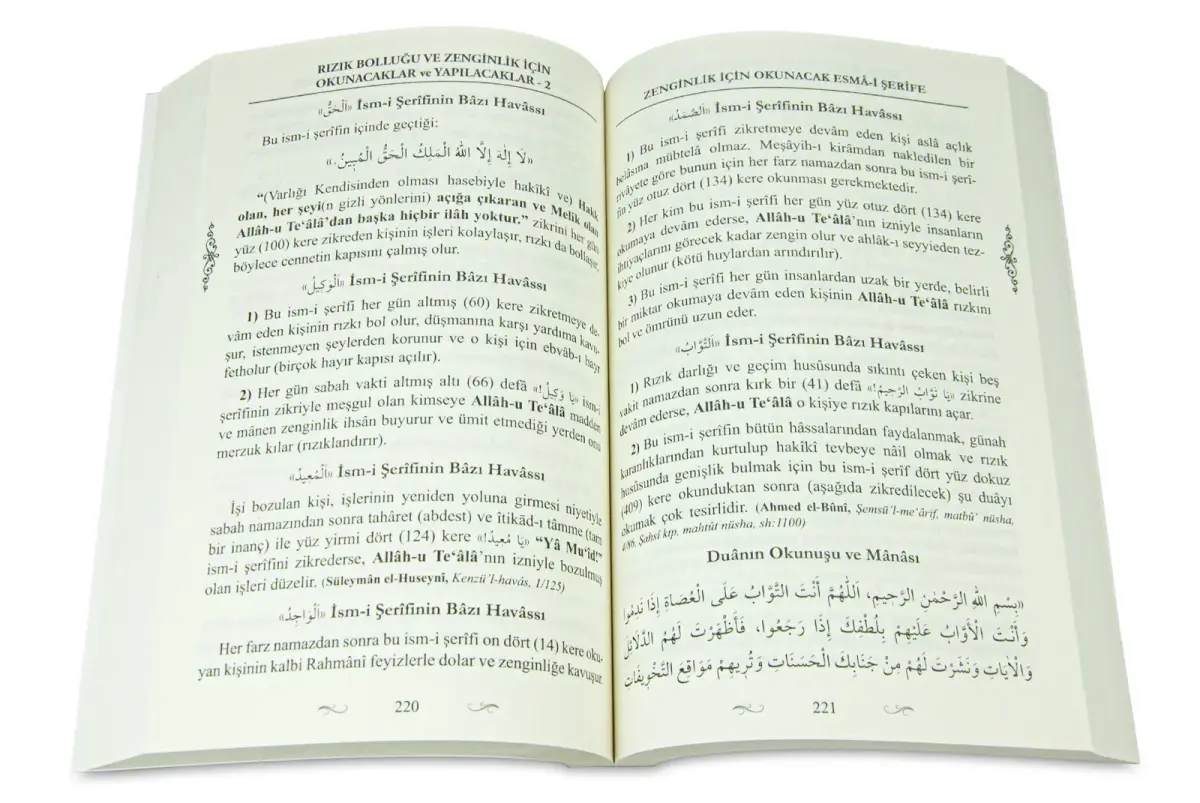 RIZIK BOLLUĞU VE ZENGİNLİK İÇİN
OKUNACAKLAR ve YAPILACAKLAR - 2
«اَلْحَقُّ» İsm-i Şerîfinin Bâzı Havâssı
Bu ism-i şerîfin içinde geçtiği:
«لَا إِلٰهَ إِلَّا اللهُ الْمَلِكُ الْحَقُّ الْمُبِينُ.»
“(Varlığı Kendisinden olması hasebiyle hakîkî ve) Hakk
olan, her şeyi(n gizli yönlerini) açığa çıkaran ve Melik olan
Allâh-u Te‘âlâ’dan başka hiçbir ilâh yoktur.” zikrini her gün
yüz (100) kere zikreden kişinin işleri kolaylaşır, rızkı da bollaşır,
böylece cennetin kapısını çalmış olur.
«اَلْوَكِيلُ» İsm-i Şerîfinin Bâzı Havâssı
1) Bu ism-i şerîfi her gün altmış (60) kere zikretmeye de-
vâm eden kişinin rızkı bol olur, düşmanına karşı yardıma kavu-
şur, istenmeyen şeylerden korunur ve o kişi için ebvâb-ı hayr
fetholur (birçok hayır kapısı açılır).
2) Her gün sabah vakti altmış altı (66) defâ «يَا وَكِيلُ!» ism-i
şerîfinin zikriyle meşgul olan kimseye Allâh-u Te‘âlâ madden
ve mânen zenginlik ihsân buyurur ve ümit etmediği yerden onu
merzuk kılar (rızıklandırır).
«اَلْمُعِيدُ» İsm-i Şerîfinin Bâzı Havâssı
İşi bozulan kişi, işlerinin yeniden yoluna girmesi niyetiyle
sabah namazından sonra tahâret (abdest) ve îtikâd-ı tâmme (tam
bir inanç) ile yüz yirmi dört (124) kere «يَا مُعِيدُ!» “Yâ Mu‘îd!”
ism-i şerîfini zikrederse, Allâh-u Te‘âlâ’nın izniyle bozulmuş
olan işleri düzelir. (Süleymân el-Huseynî, Kenzü’l-havâs, 1/125)
«اَلْوَاجِدُ» İsm-i Şerîfinin Bâzı Havâssı
Her farz namazdan sonra bu ism-i şerîfi on dört (14) kere oku-
yan kişinin kalbi Rahmânî feyizlerle dolar ve zenginliğe kavuşur.
220
ZENGİNLİK İÇİN OKUNACAK ESMÂ-İ ŞERÎFE
«اَلصَّمَدُ» İsm-i Şerîfinin Bâzı Havâssı
1) Bu ism-i şerîfi zikretmeye devâm eden kişi aslâ açlık
belâsına mübtelâ olmaz. Meşâyih-ı kirâmdan nakledilen bir
rivâyete göre bunun için her farz namazdan sonra bu ism-i şerî-
fin yüz otuz dört (134) kere okunması gerekmektedir.
2) Her kim bu ism-i şerîfi her gün yüz otuz dört (134) kere
okumaya devâm ederse, Allâh-u Te‘âlâ’nın izniyle insanların
ihtiyaçlarını görecek kadar zengin olur ve ahlâk-ı seyyieden tez-
kiye olunur (kötü huylardan arındırılır).
3) Bu ism-i şerîfi her gün insanlardan uzak bir yerde, belirli
bir miktar okumaya devâm eden kişinin Allâh-u Te‘âlâ rızkını
bol ve ömrünü uzun eder.
«اَلتَّوَّابُ» İsm-i Şerîfinin Bâzı Havâssı
1) Rızık darlığı ve geçim husûsunda sıkıntı çeken kişi beş
vakit namazdan sonra kırk bir (41) defâ «يَا تَوَّابُ الرَّحِيمُ!» zikrine
devâm ederse, Allâh-u Te‘âlâ o kişiye rızık kapılarını açar.
2) Bu ism-i şerîfin bütün hâssalarından faydalanmak, günah
karanlıklarından kurtulup hakîkî tevbeye nâil olmak ve rızık
husûsunda genişlik bulmak için bu ism-i şerîf dört yüz dokuz
(409) kere okunduktan sonra (aşağıda zikredilecek) şu duâyı
okumak çok tesirlidir. (Ahmed el-Bûnî, Şemsü’l-me‘ârif, matbû‘ nüsha,
4/86, Şahsî ktp. mahtût nüsha, sh:1100)
Duânın Okunuşu ve Mânâsı
«بِسْمِ اللهِ الرَّحْمٰنِ الرَّحِيمِ، اَللّٰهُمَّ أَنْتَ التَّوَّابُ عَلَى الْعُصَاةِ إِذَا نَدِمُوا
وَأَنْتَ الْأَوَّابُ عَلَيْهِمْ بِلُطْفِكَ إِذَا رَجَعُوا، فَأَظْهَرْتَ لَهُمُ الدَّلَائِلَ
وَالْاٰيَاتِ وَنَشَرْتَ لَهُمْ مِنْ جَنَابِكَ الْحَسَنَاتِ وَتُرِيهِمْ مَوَاقِعَ التَّخْوِيفَاتِ
221